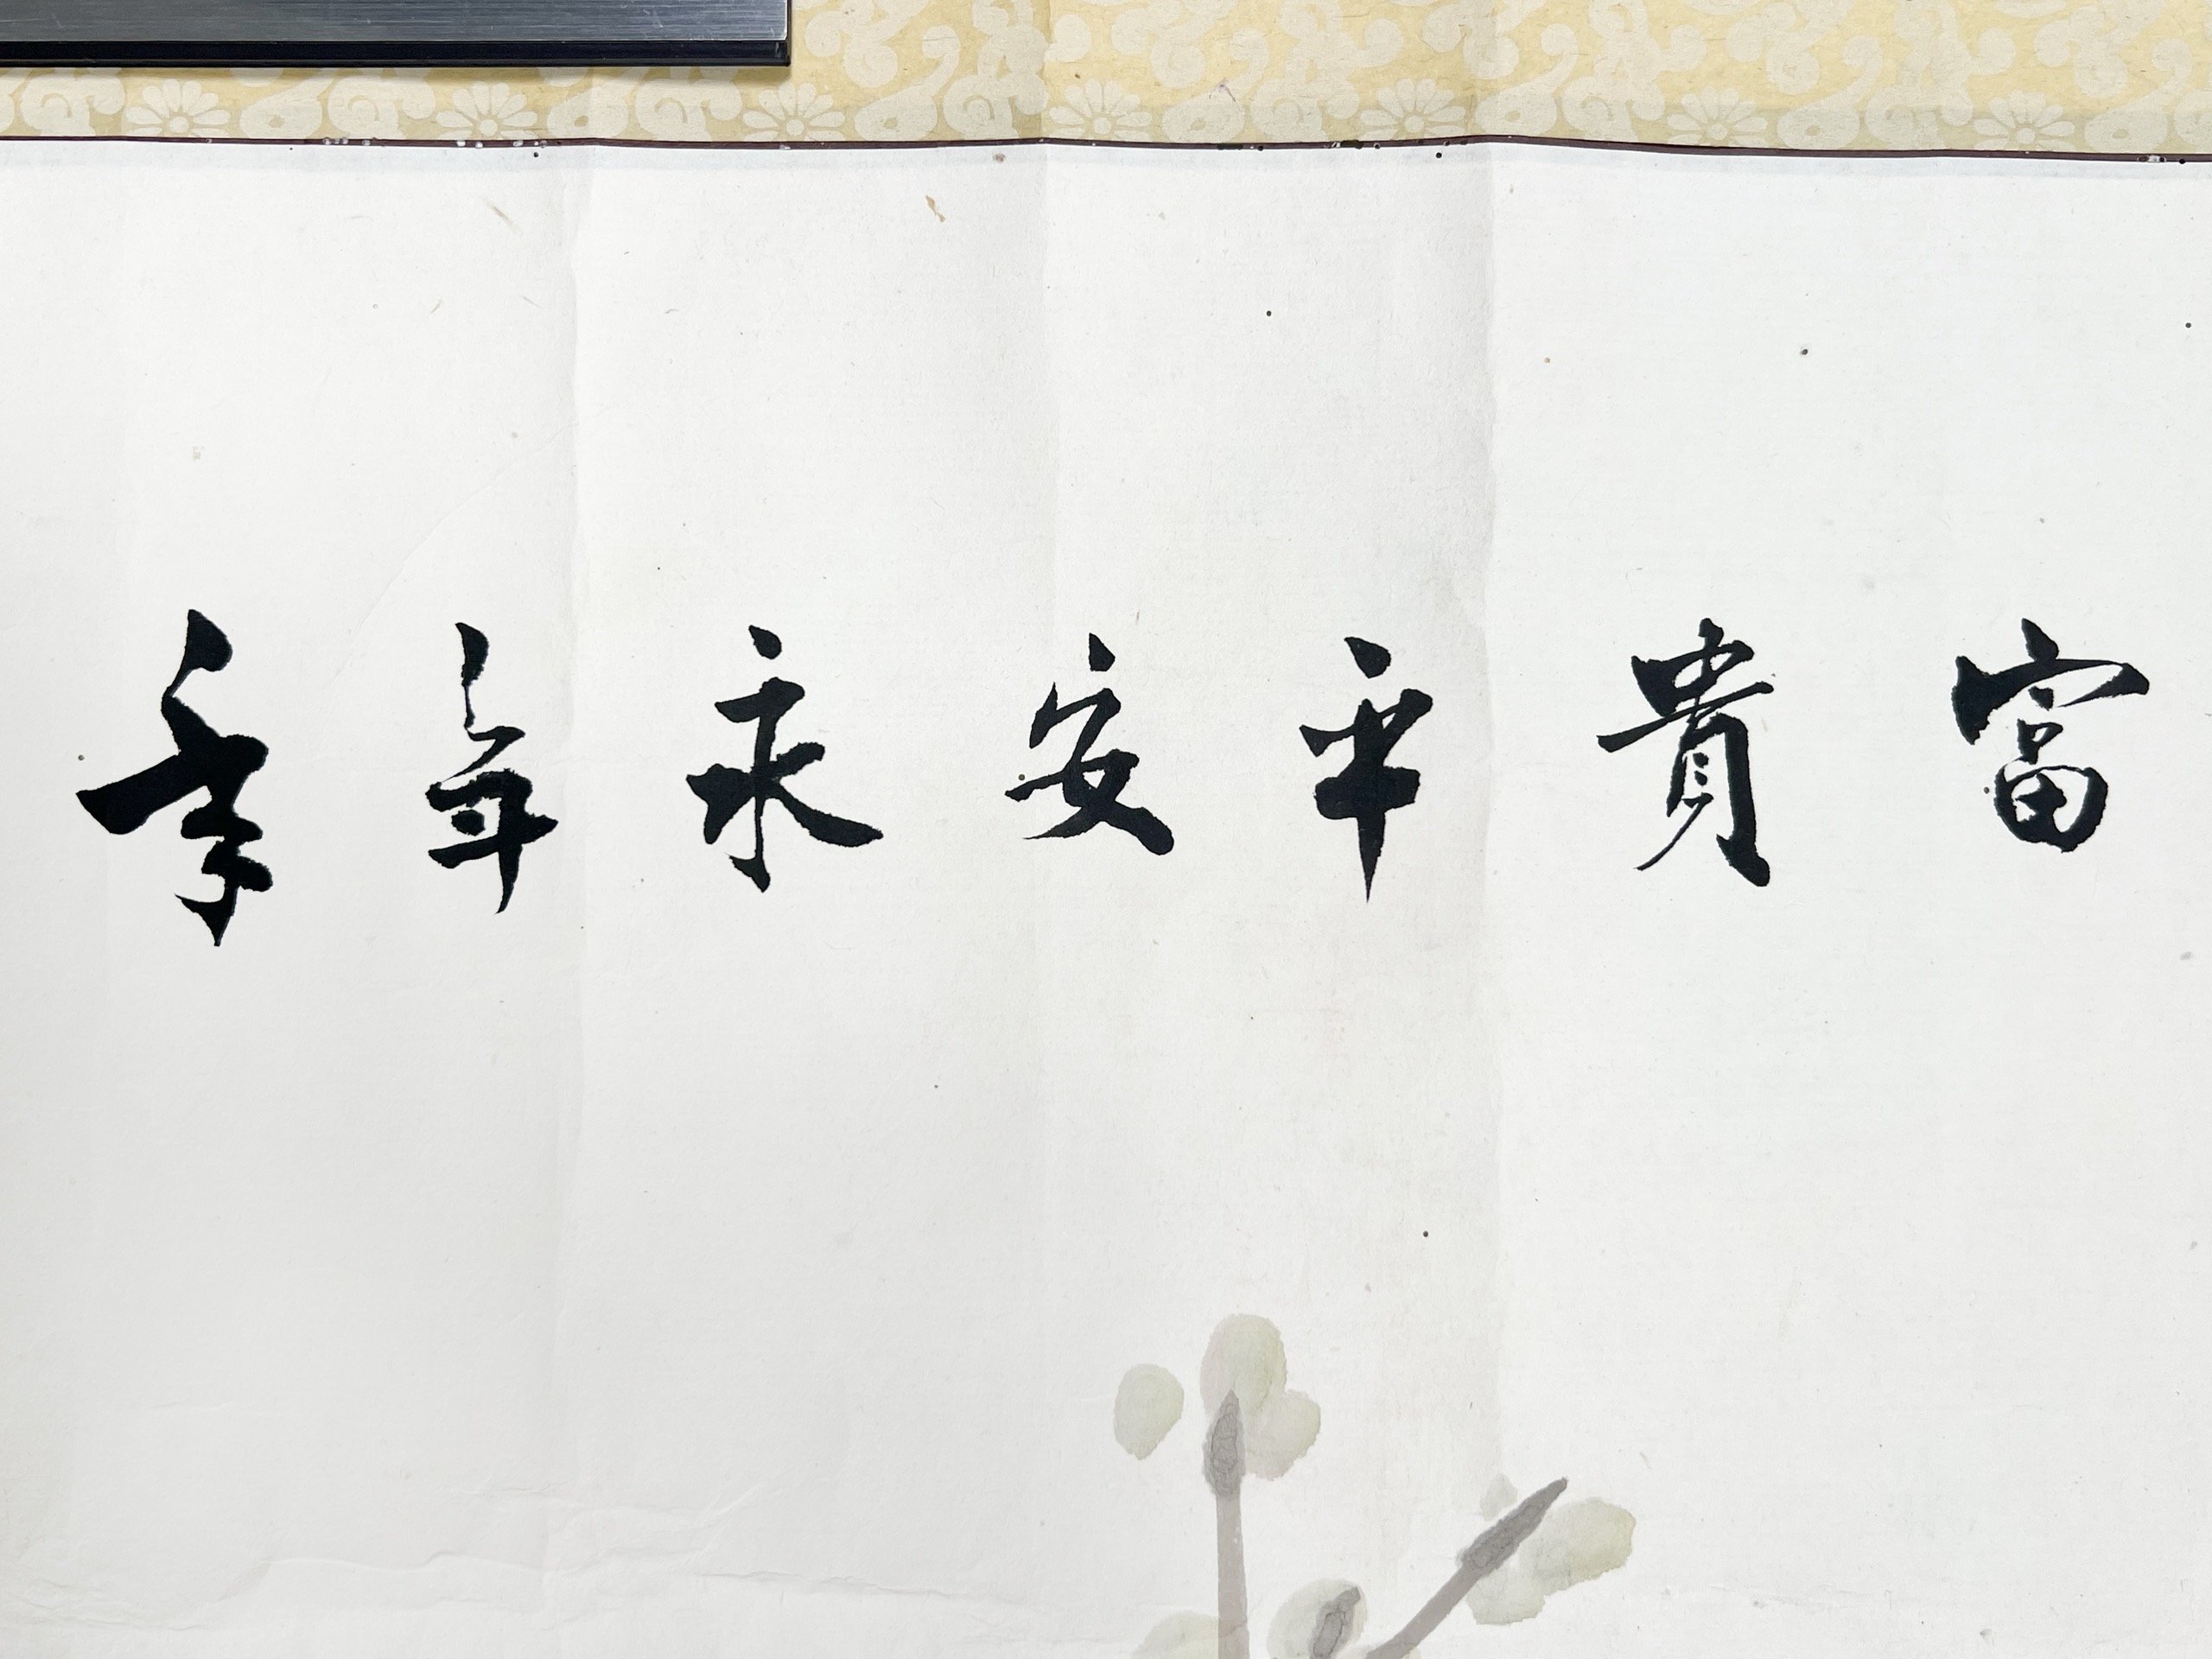 富貴平安永年年